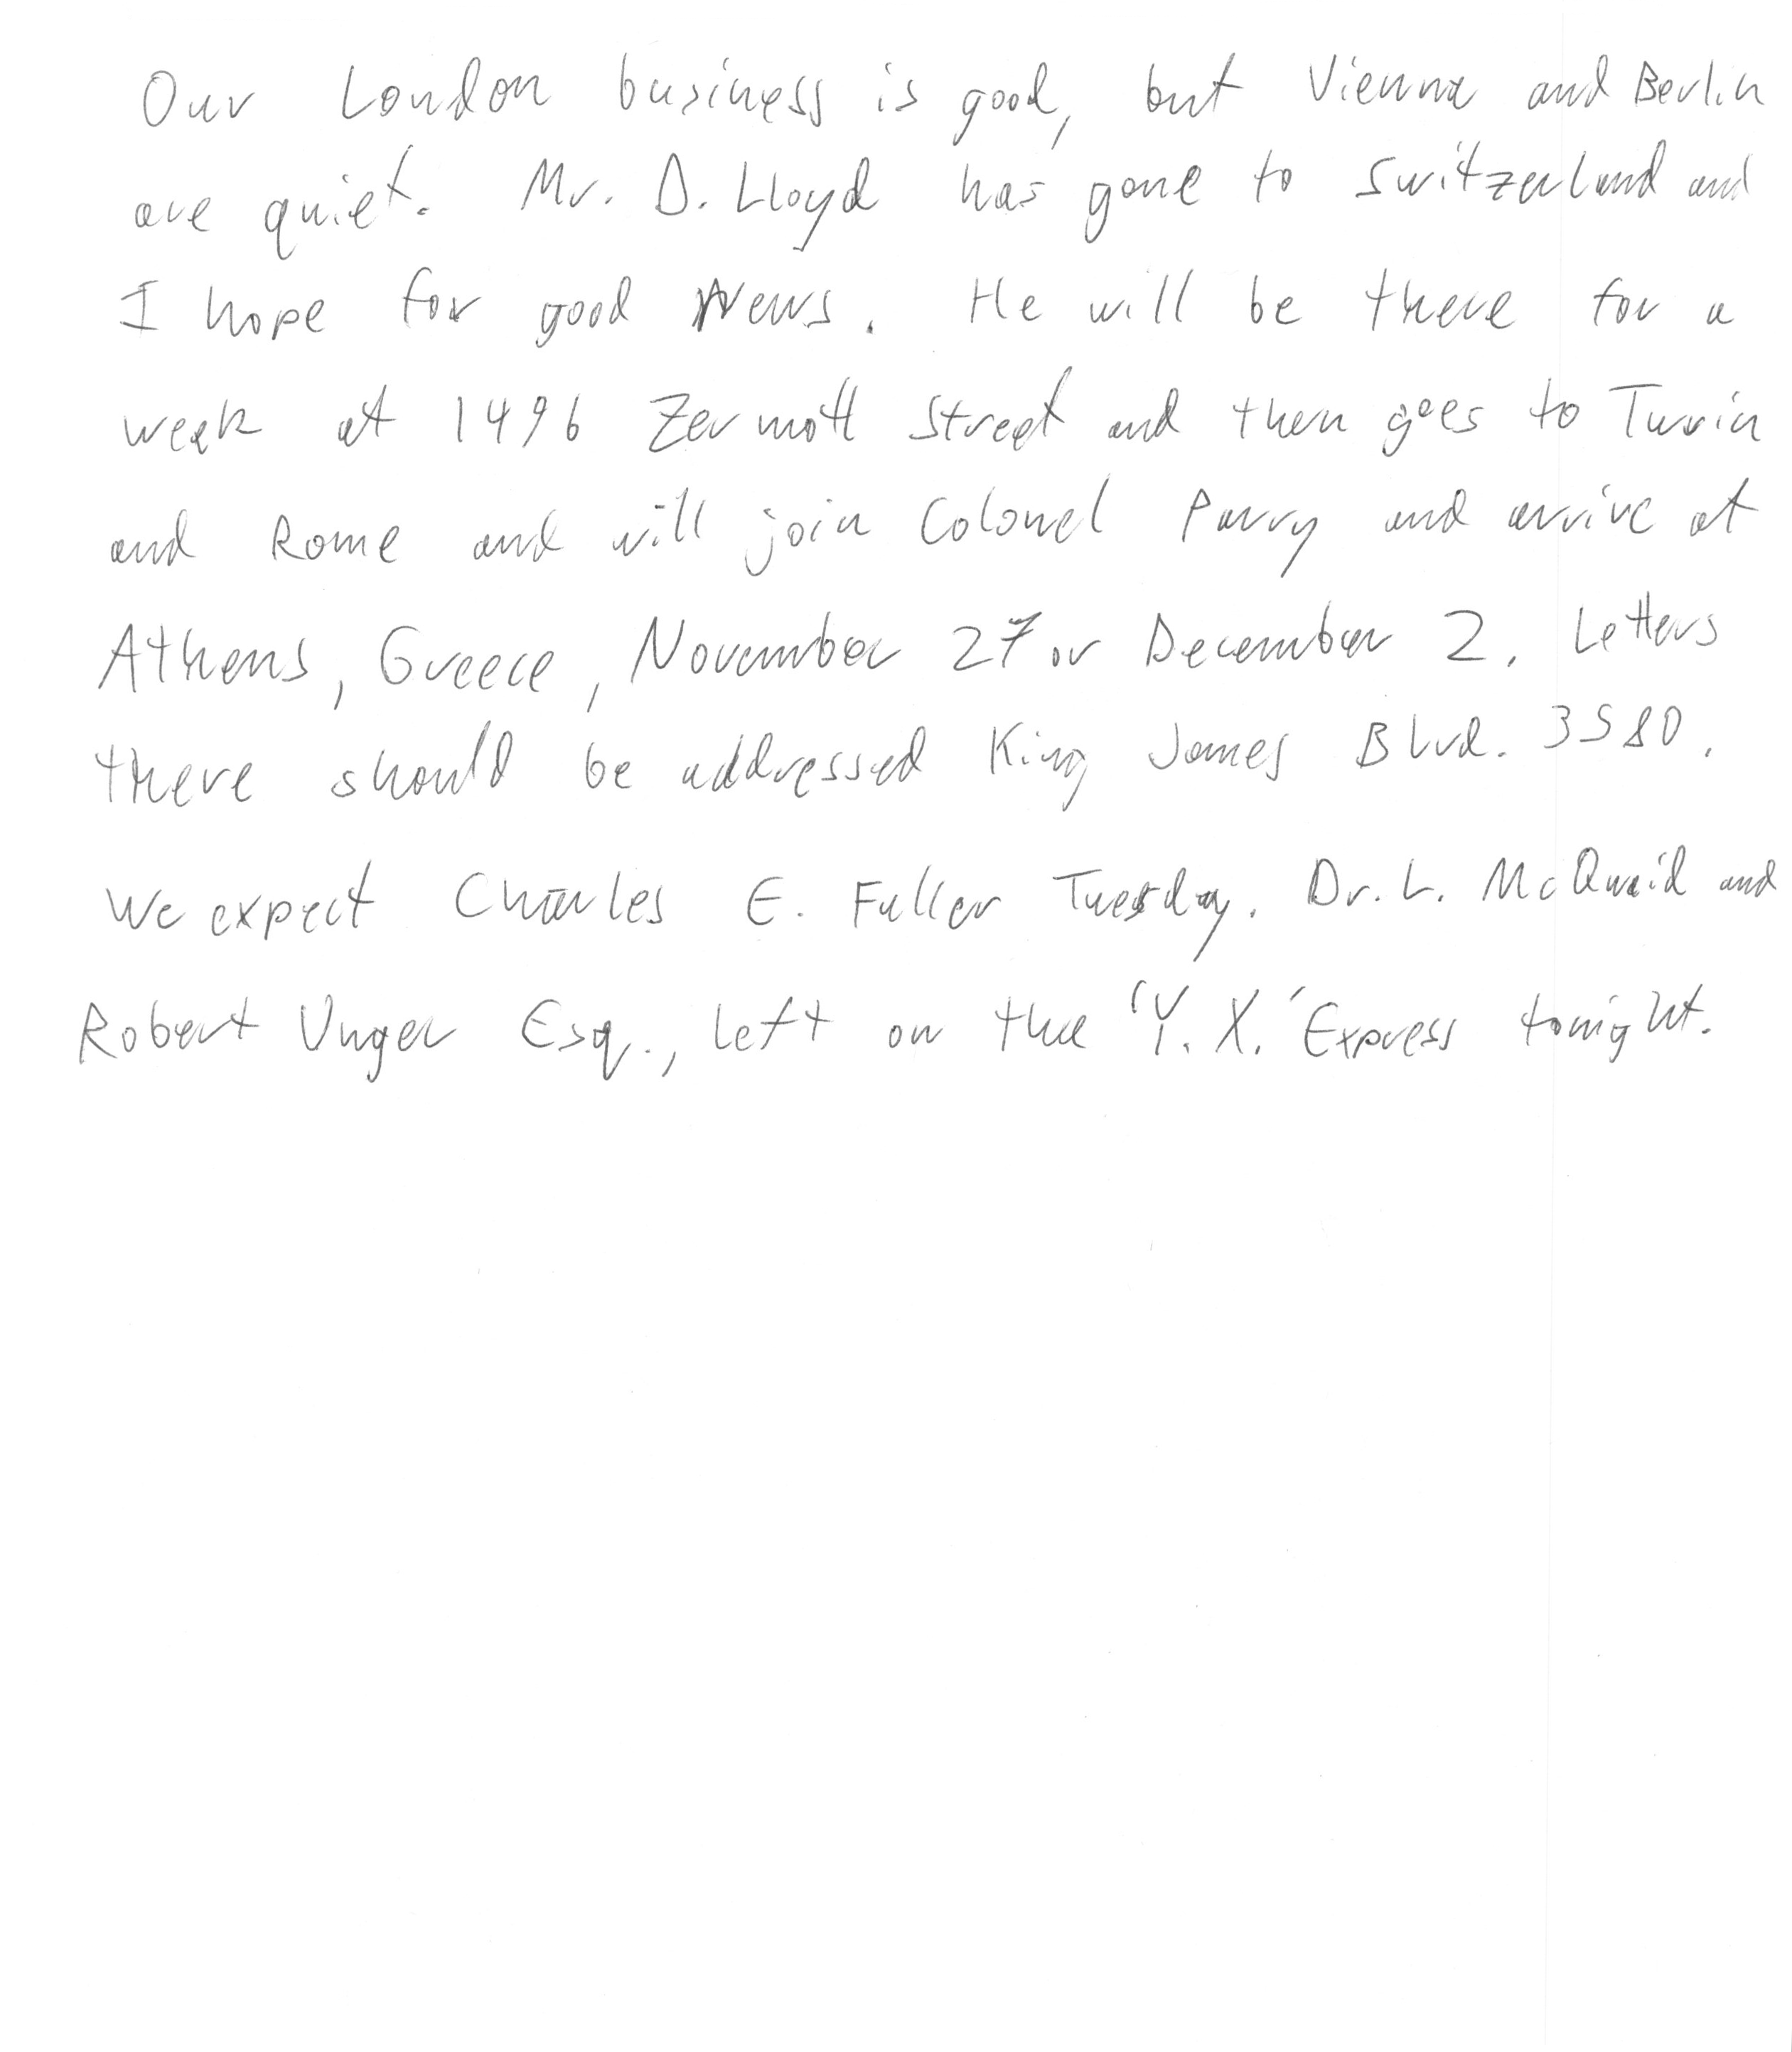 Our London business is good, but Vienna and Berlin
are quiet. Mr. D. Lloyd has gone to Switzerland and
I hope for good News. He will be there for a
week at 1496 Zermott Street and then goes to Turin
and Rome and will join Colonel Parry and arrive at
Athens, Greece, November 27 or December 2. Letters
there should be addressed King James Blvd. 3580.
We expect Charles E. Fuller Tuesday. Dr. L. McQuaid and
Robert Unger Esq., left on the 'Y. X.' Express tonight.